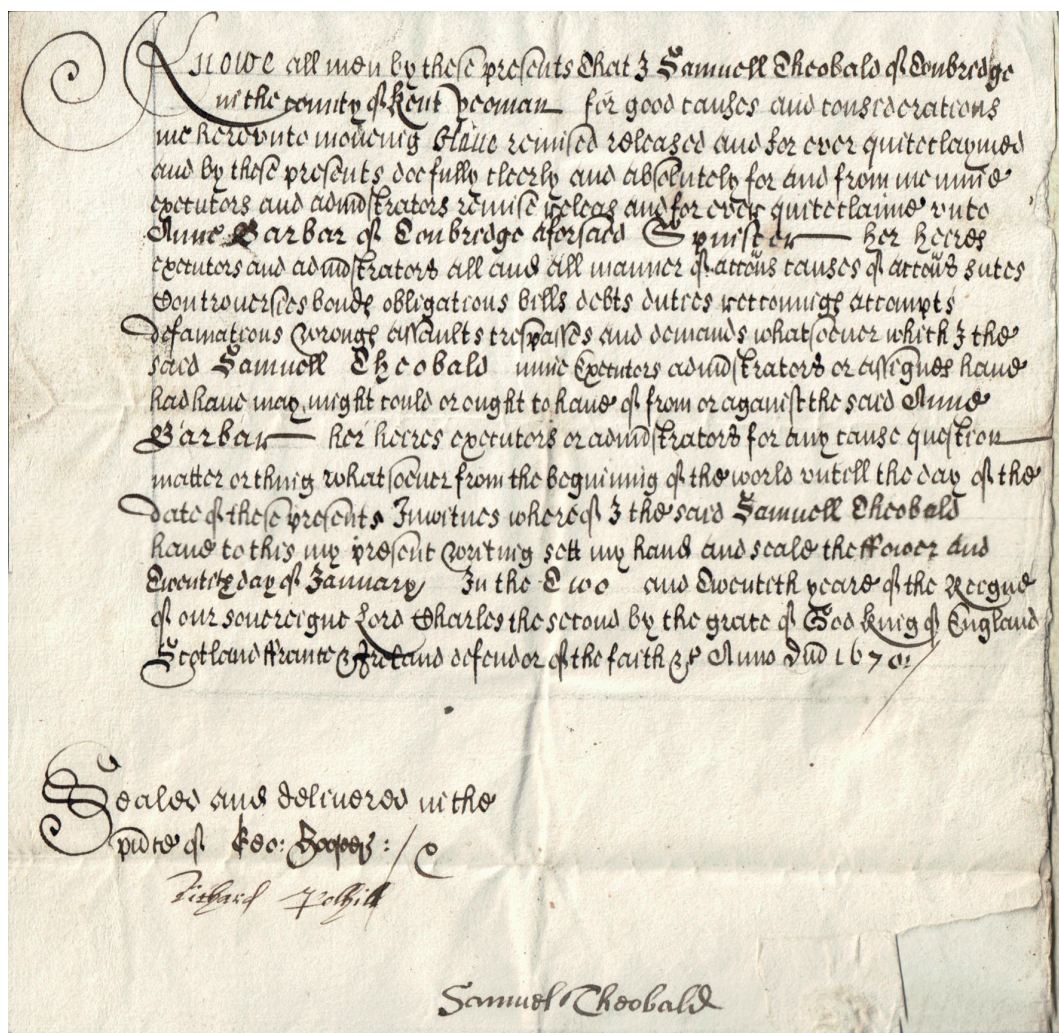 Knowe all men by these presents That I Samuell Theobald of Tonbredge
in the County of Kent Yeoman for good causes and consideracions
me herevnto moveing Haue remised released and for ever quiteclaymed
and by these presents doe fully cleerly and absolutely for and from me mine
executors and administrators remise releas and for ever quiteclaime vnto
Anne Barbar of Tonbredge aforsaid Spinster her heeres
executors and administrators all and all manner of accons causes of accons sutes
Controversies bonds obligations bills debts duties reckonings accompts
defamations wrongs assaults trespasses and demands whatsoever which I the
said Samuell Theobald mine Executors administrators or assignes haue
had haue may might could or ought to haue of from or against the said Anne
Barbar her heeres executors or administrators for any cause question
matter or thing whatsoever from the beginning of the world vntell the day of the
date of these presents In witnes whereof I the said Samuell Theobald
haue to this my present writing sett my hand and seale the ffower and
Twentith day of January In the Two and Twentith yeare of the Reigne
of our sovereigne Lord Charles the second by the grace of God King of England
Scotland ffrance & Ireland defendor of the faith &c Anno Dni 1670
Sealed and delivered in the
pnce of Geo: Hooper
Richard Polhill
Samuel Theobald